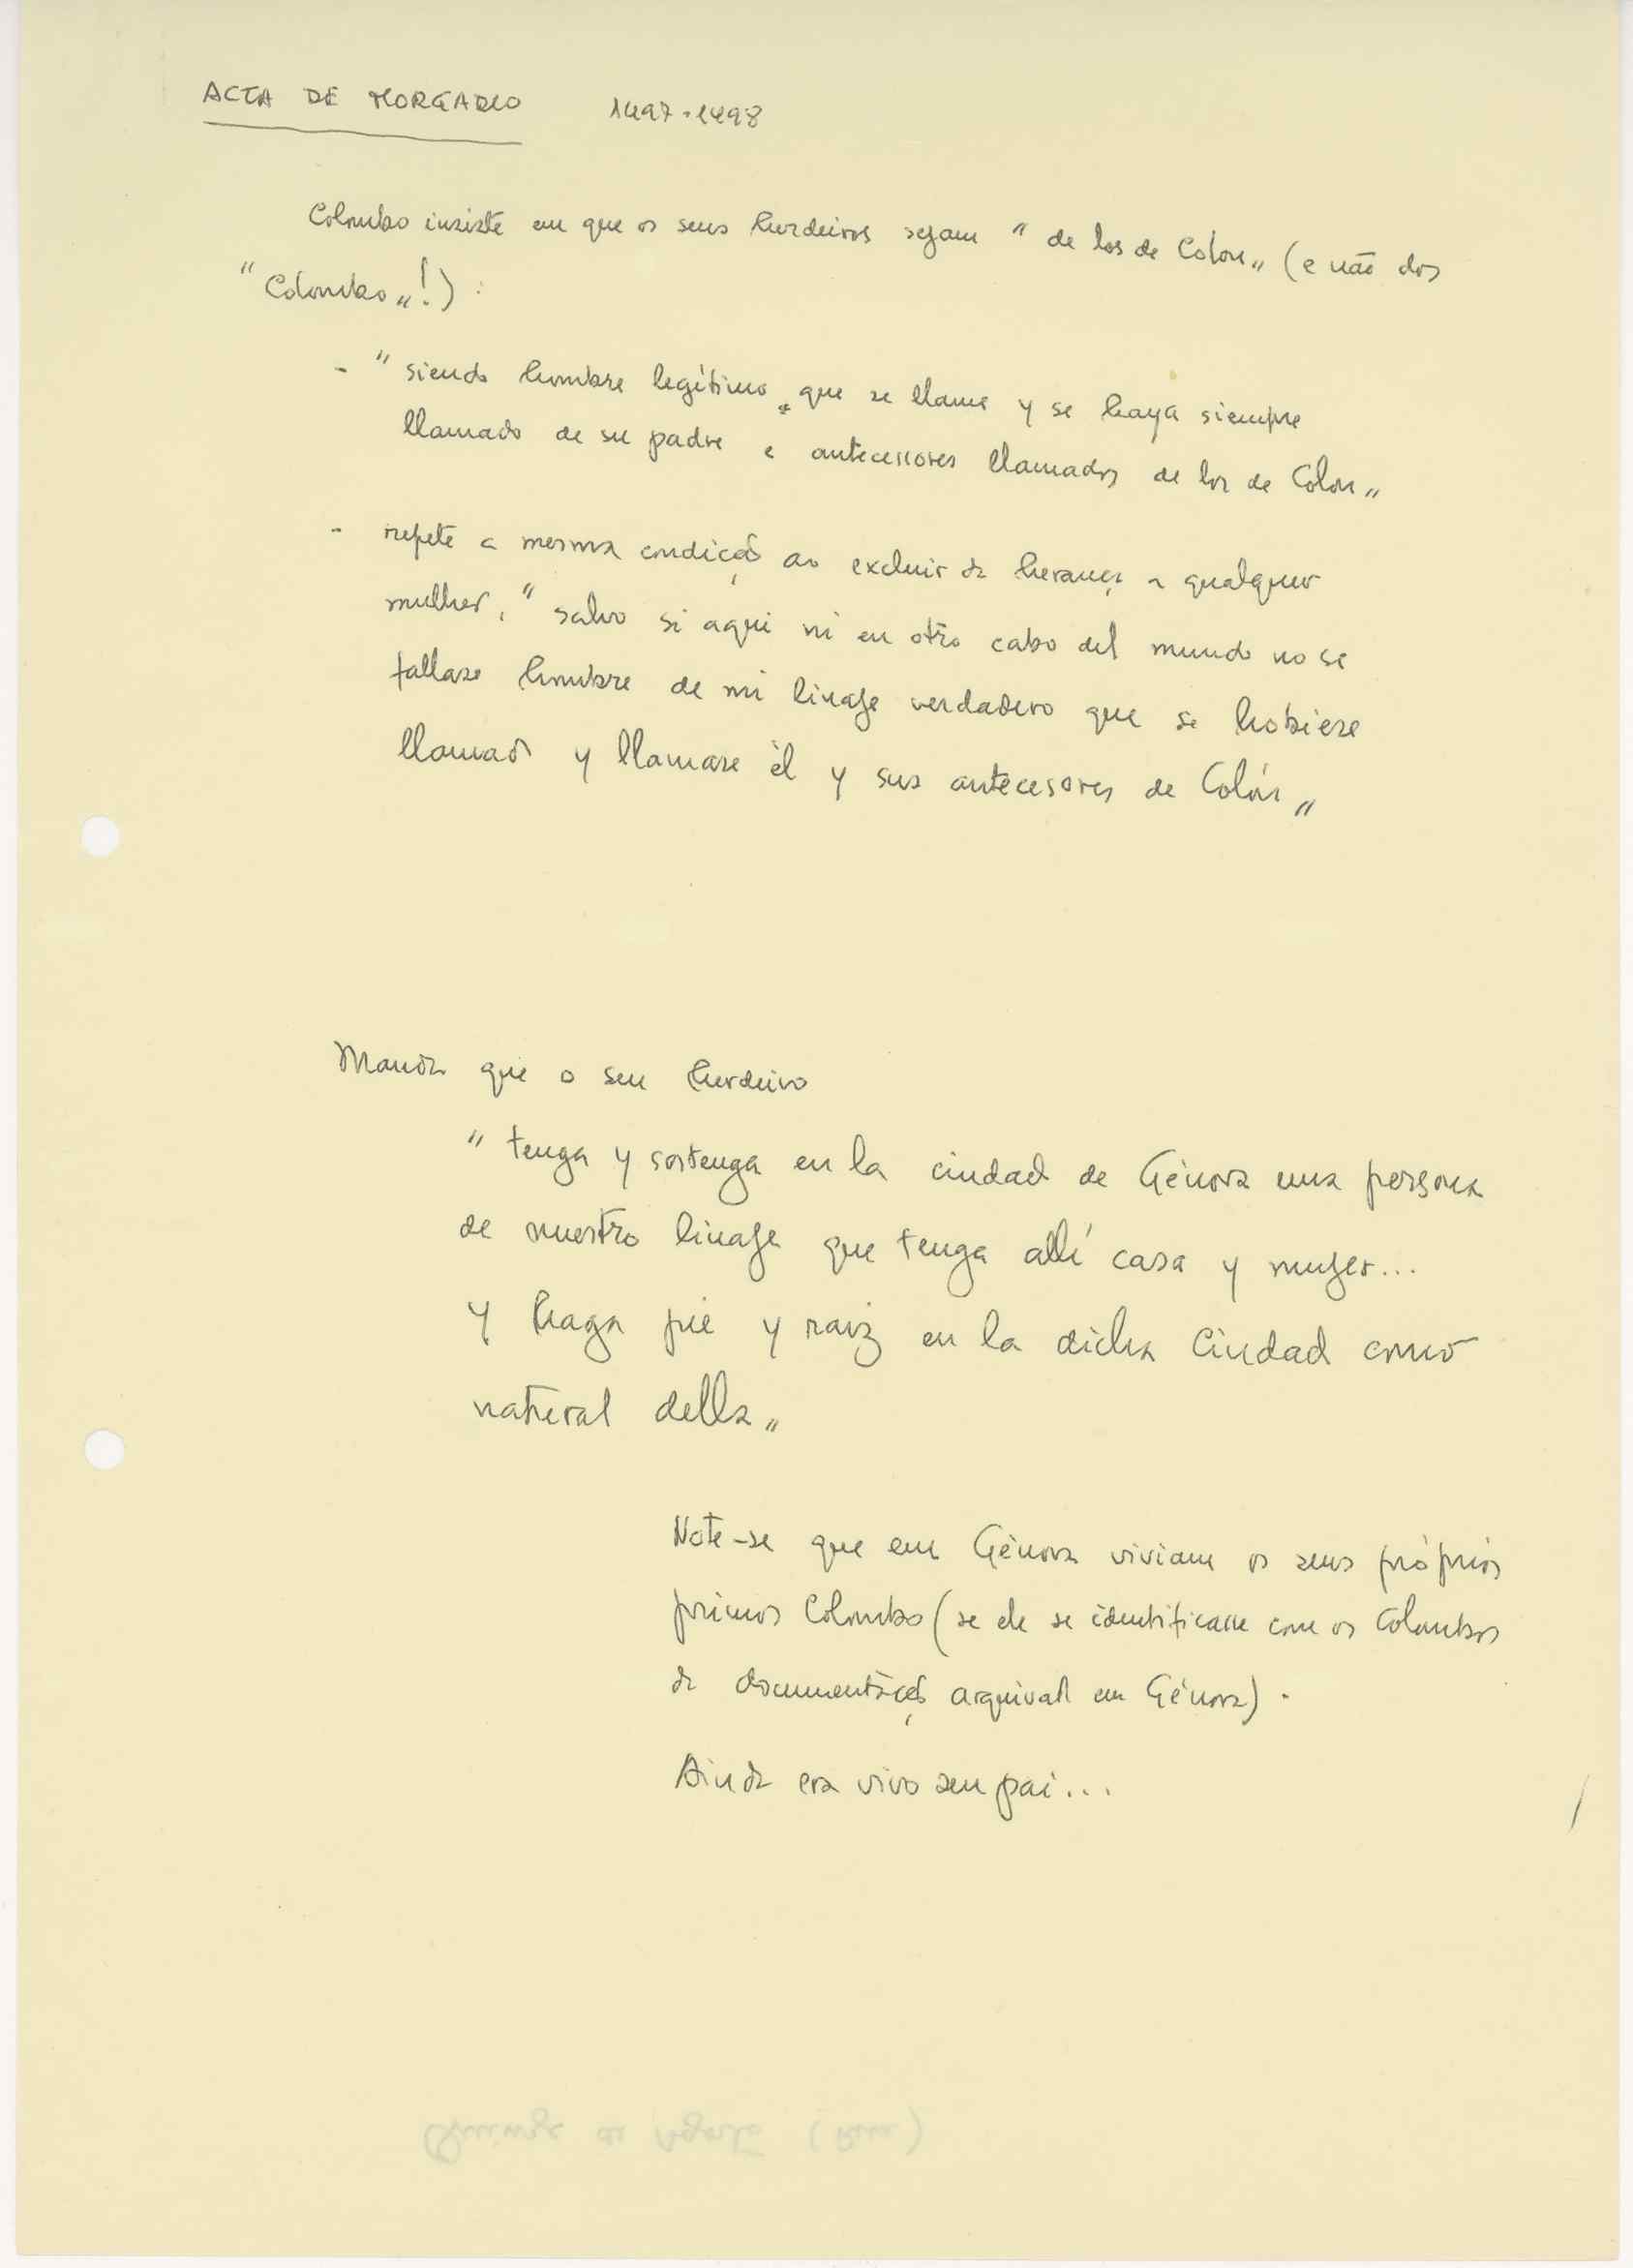 ACTA DE MORGADIO 1497-1498
Colombo insiste em que os seus herdeiros sejam "de los de Colon" (e não dos
"Colombo"!) :
- "siendo hombre legítimo, que se llame y se haya siempre
llamado de su padre e antecessores llamados de los de Colon"
- repete a mesma condição ao excluir da herança a qualquer
mulher, "salvo si aqui ni en otro cabo del mundo no se
fallase hombre de mi linaje verdadero que se hobiese
llamado y llamase él y sus antecesores de Colón"
Manda que o seu herdeiro
"tenga y sostenga en la ciudad de Génova una persona
de nuestro linaje que tenga allí casa y mujer...
y haga pie y raiz en la dicha ciudad como
natural della"
Note-se que em Génova viviam os seus próprios
primos Colombo (se ele se identificasse com os Colombos
da documentação arquival em Génova).
Ainda era vivo seu pai...